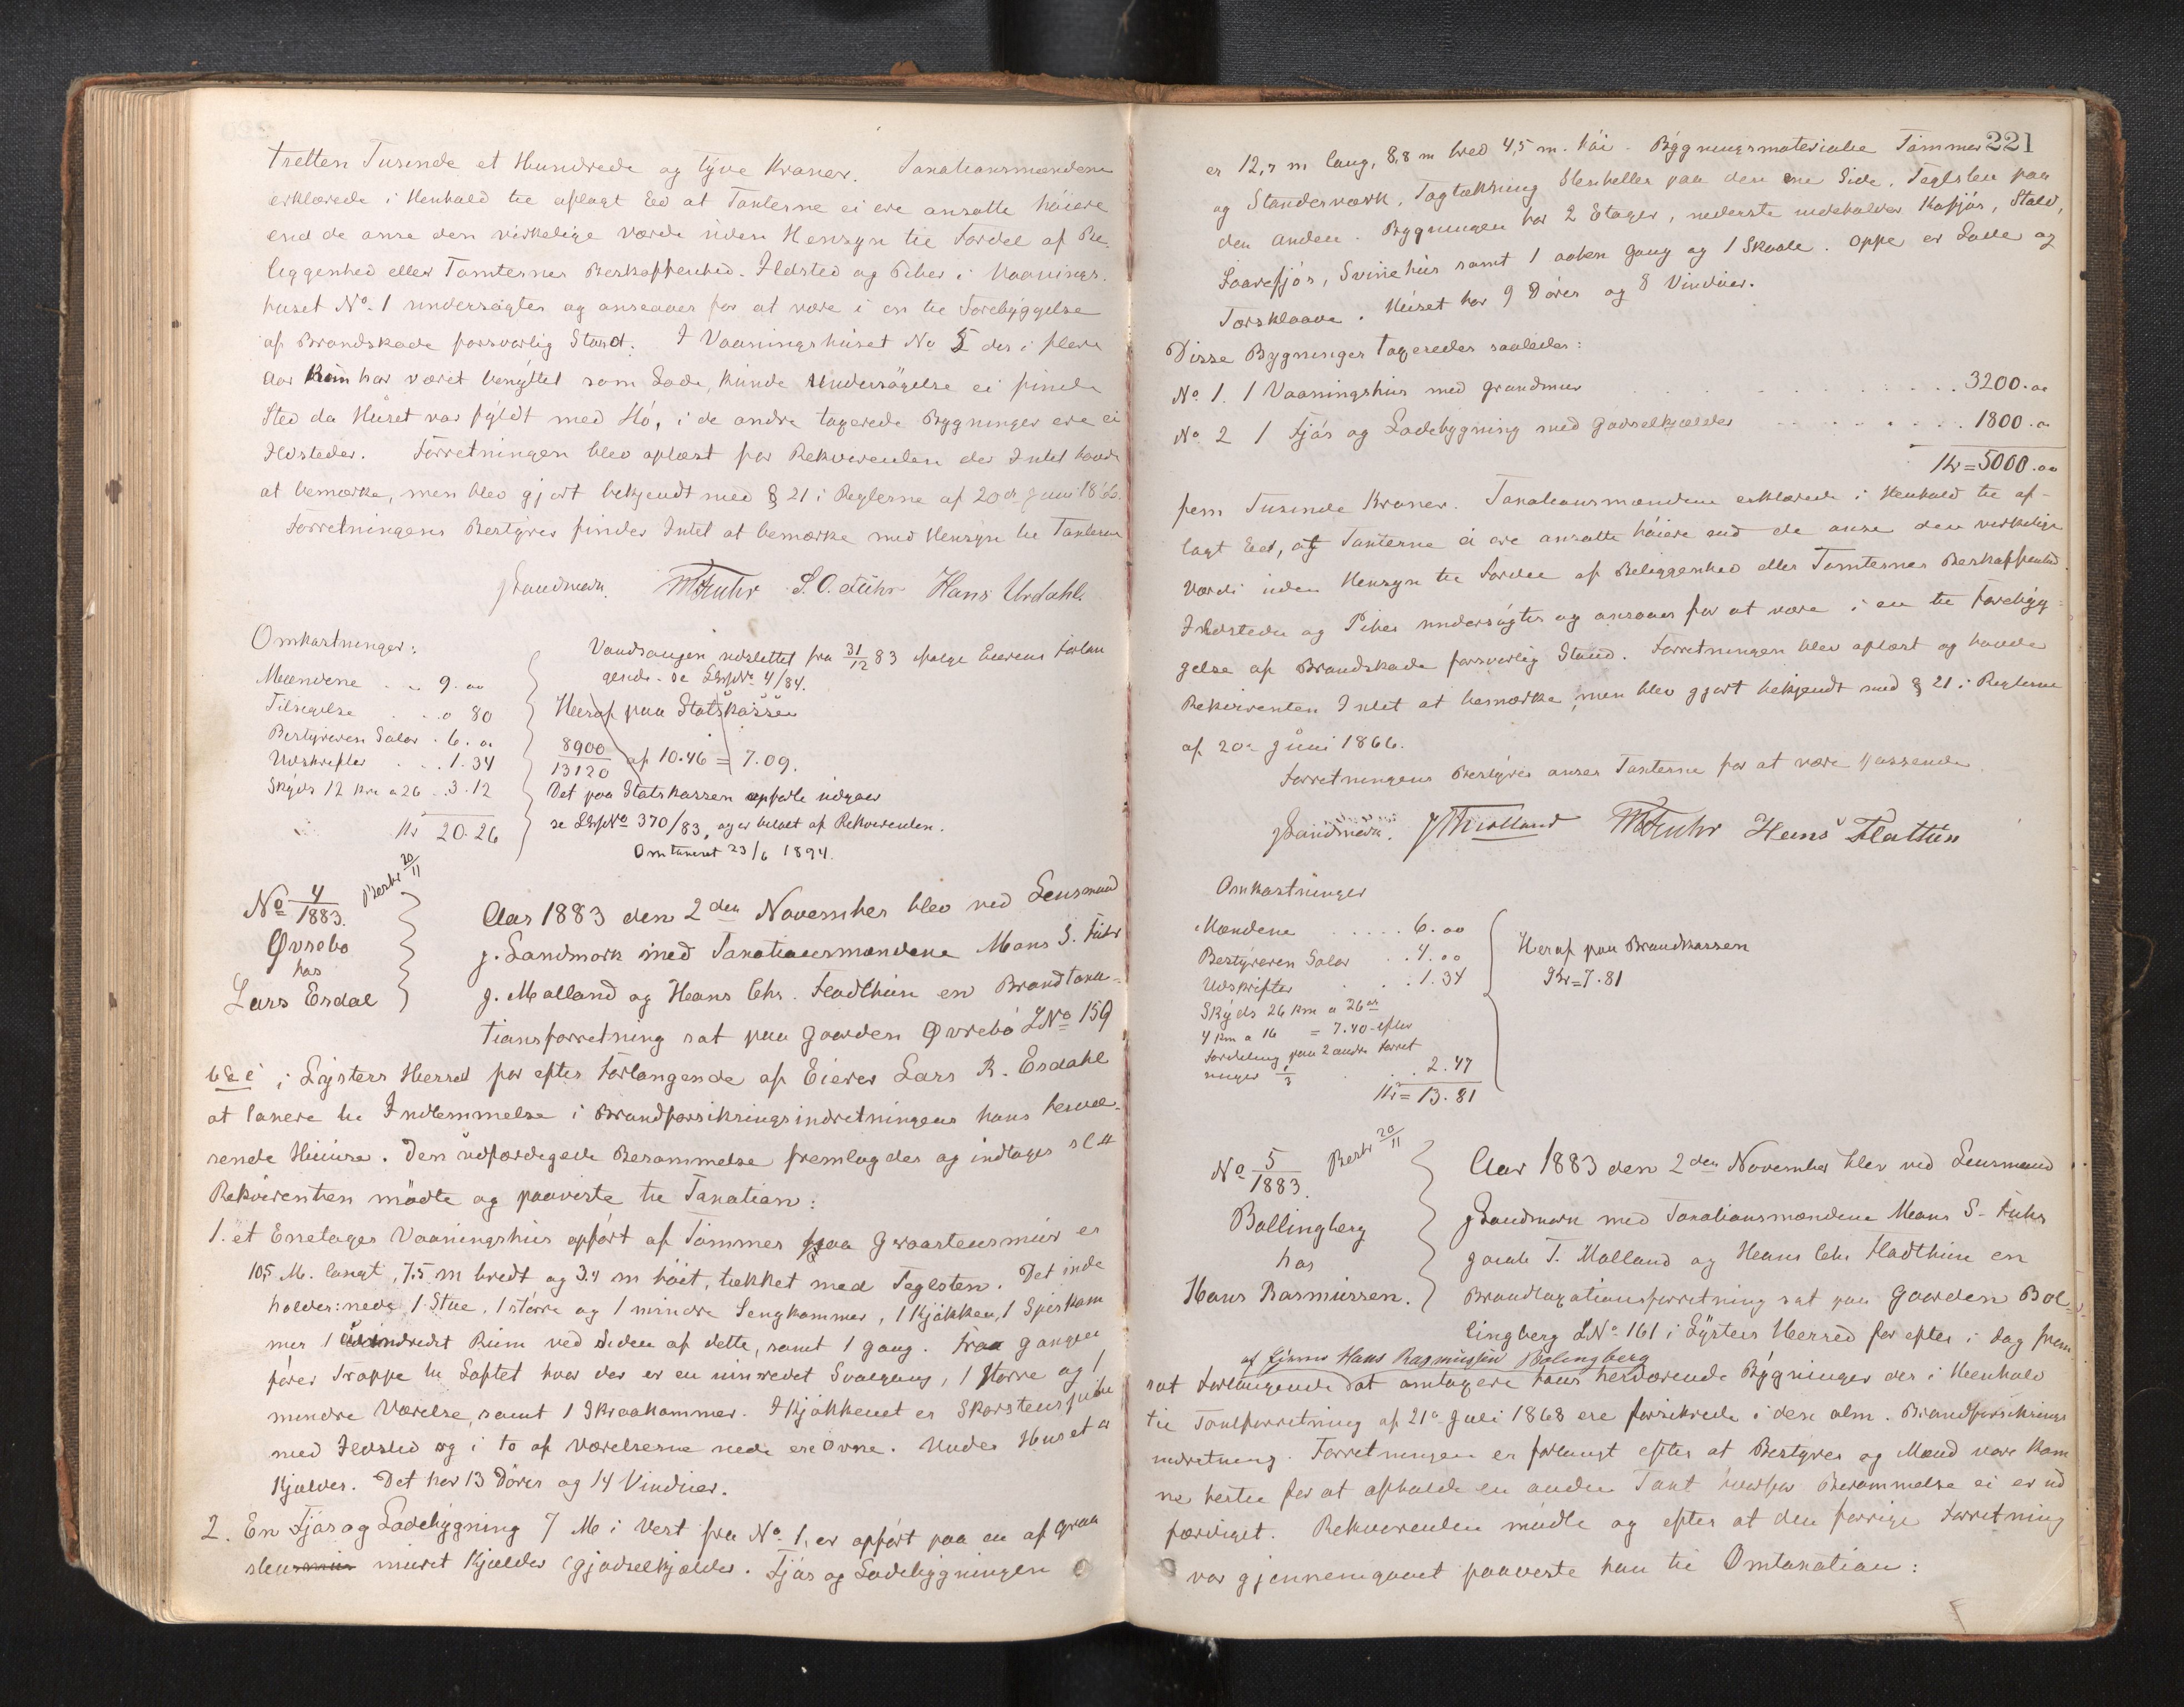 tretten Tusinde et Hundrede og tyve Kroner. Taxationsmændene
erklærede i Henhold til aflagt Eed at Taxterne ei ere ansatte høiere
end de anse den virkelige Værdi uden Hensyn til Fordel af Be-
liggenhed eller Tomternes Beskaffenhed. Ildsted og Piber i Vaanings-
huset No. 1 undersøgtes og ansaaes for at være i en til Forebyggelse
af Brandskade forsvarlig Stand. I Vaaningshuset No 5 der i flere
Aar kun har været benyttet som Lade, kunde Undersøgelse ei finde
Sted da Huset var fyldt med Hø, i de andre taxerede Bygninger ere ei
Ildsteder. Forretningen blev oplæst for Rekvirenten der Intet havde
at bemærke, men blev gjort bekjendt med § 21 i Reglerne af 20de Juni 1866.
Forretningens Bestyrer finder Intet at bemærke med Hensyn til Taxterne
JLandmark. MSFuhr S. O. Fuhr Hans Urdahl.
Omkostninger:
Mændene . . 9.00
Tilsigelse . . 0 80
Bestyreren Salær . 6.00
Udskrifter . . 1.34
Skyds 12 Km a 26 . 3.12
Kr 20.26
Vandsaugen udslettet fra 31/12 83 ifølge Eierens Forlan
gende. se LNo 4/84.
Heraf paa Statskassen
8900/13120 af 10.46 = 7.09.
Det paa Statskassen opførte udgaar
se No 370/83, og er betalt af Rekvirenten.
Omtaxeret 23/6 1894.
No 4/1883. Besk 20/11
Øvrebø
hos
Lars Esdal
Aar 1883 den 2den November blev ved Lensmand
J. Landmark med Taxationsmændene Mons S. Fuhr
J. Molland og Hans Chr. Fladthun en Brandtaxa-
tionsforretning sat paa Gaarden Øvrebø LNo 159
b & c i Lysters Herred for efter Forlangende af Eieren Lars R. Esdahl
at taxere til Indlemmelse i Brandforsikringsindretningen hans hervæ-
rende Huuse. Den udfærdigede Berammelse fremlagdes og indtages sl #
Rekvirenten mødte og paaviste til Taxation:
1. et Enetages Vaaningshus opført af Tømmer paa Graastensmur er
10,5 M. langt, 7,5 m bredt og 3.4 m høit, tækket med Teglsten. Det inde
holder: nede 1 Stue, 1 større og 1 mindre Sengkammer, 1 Kjøkken, 1 Spiskam
mer 1 uindredet Rum ved Siden af dette, samt 1 Gang. Fra Gangen
fører Trappe til Loftet hvor der er en uinredet Svalgang, 1 større og 1
mindre Værelse, samt 1 Skraakammer. I Kjøkkenet er Skorstenspibe
med Ildsted og i to af Værelserne nede ere Ovne. Under Huset er
Kjælder. Det har 13 Døre og 14 Vinduer.
2. En Fjøs og Ladebygning 7 M i Vest fra No 1, er opført paa en af Graa
sten muret Kjælder (Gjødselkjælder. Fjøs og Ladebygningen
221
er 12,5 m lang, 8,8 m bred 4,5 m. høi. Bygningsmateriale Tømmer
og Standerværk, Tagtækning Stenheller paa den ene Side, Teglsten paa
den anden. Bygningen har 2 Etager, nederste indeholder Kofjøs, Stald,
Faarefjøs, Svinehus samt 1 aaben Gang og 1 Skaale. Oppe er Lade og
Torsklaave. Huset har 9 Døre og 8 Vinduer.
Disse Bygninger taxeredes saaledes:
No 1. 1 Vaaningshus med Grundmur . . . 3200.00
No 2 1 Fjøs og Ladebygning med Gjødselkjælder . . . 1800.00
Kr = 5000.00
fem Tusinde Kroner. Taxationsmændene erklærede i Henhold til af-
lagt Eed, at Taxterne ei ere ansatte høiere end de anse den virkelige
Værdi uden Hensyn til Fordel af Beliggenhed eller Tomternes Beskaffenhed.
Ildsteder og Piber undersøgtes og ansaaes for at være i en til Forebyg-
gelse af Brandskade forsvarlig Stand. Forretningen blev oplæst og havde
Rekvirenten Intet at bemærke, men blev gjort bekjendt med § 21 i Reglerne
af 20de Juni 1866.
Forretningens Bestyrer anser Taxterne for at være passende.
JLandmark. JTMolland MSFuhr Hans Flattun
Omkostninger
Mændene . . . . . 6.00
Bestyreren Salær . . 4.00
Udskrifter . . . 1.34
Skyds 26 Km a 26 ør
4 Km a 16 = 7.40 efter
Fordeling paa 2 andre Forret
ninger 1/3 . . . 2.47
Kr = 13.81
Heraf paa Brandkassen
Kr = 7.81
No 5/1883. Besk 20/11
Bollingberg
hos
Hans Rasmussen.
Aar 1883 den 2den November blev ved Lensmand
JLandmark med Taxationsmændene Mons S. Fuhr
Jacob T. Molland og Hans Chr Fladthun en
Brandtaxationsforretning sat paa Gaarden Bol-
lingberg LNo 161 i Lysters Herred for efter i Dag frem
af Eieren Hans Rasmussen Bolingberg
sat Forlangende at omtaxere hans herværende Bygninger der i Henhold
til Taxtforretning af 21de Juli 1868 ere forsikrede i den alm. Brandforsikrings
indretning. Forretningen er forlangt efter at Bestyrer og Mænd vare kom
ne hertil for at afholde en anden Taxt hvorfor Berammelse ei er ud
færdiget. Rekvirenten mødte og efter at den forrige Forretning
var gjennemgaaet paaviste han til Omtaxation: